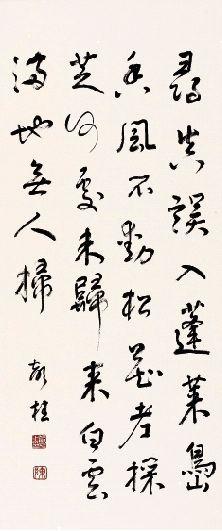 尋真誤入蓬萊島
香風不動松花老採
芝何處未歸來白雲
滿地無人掃
桂